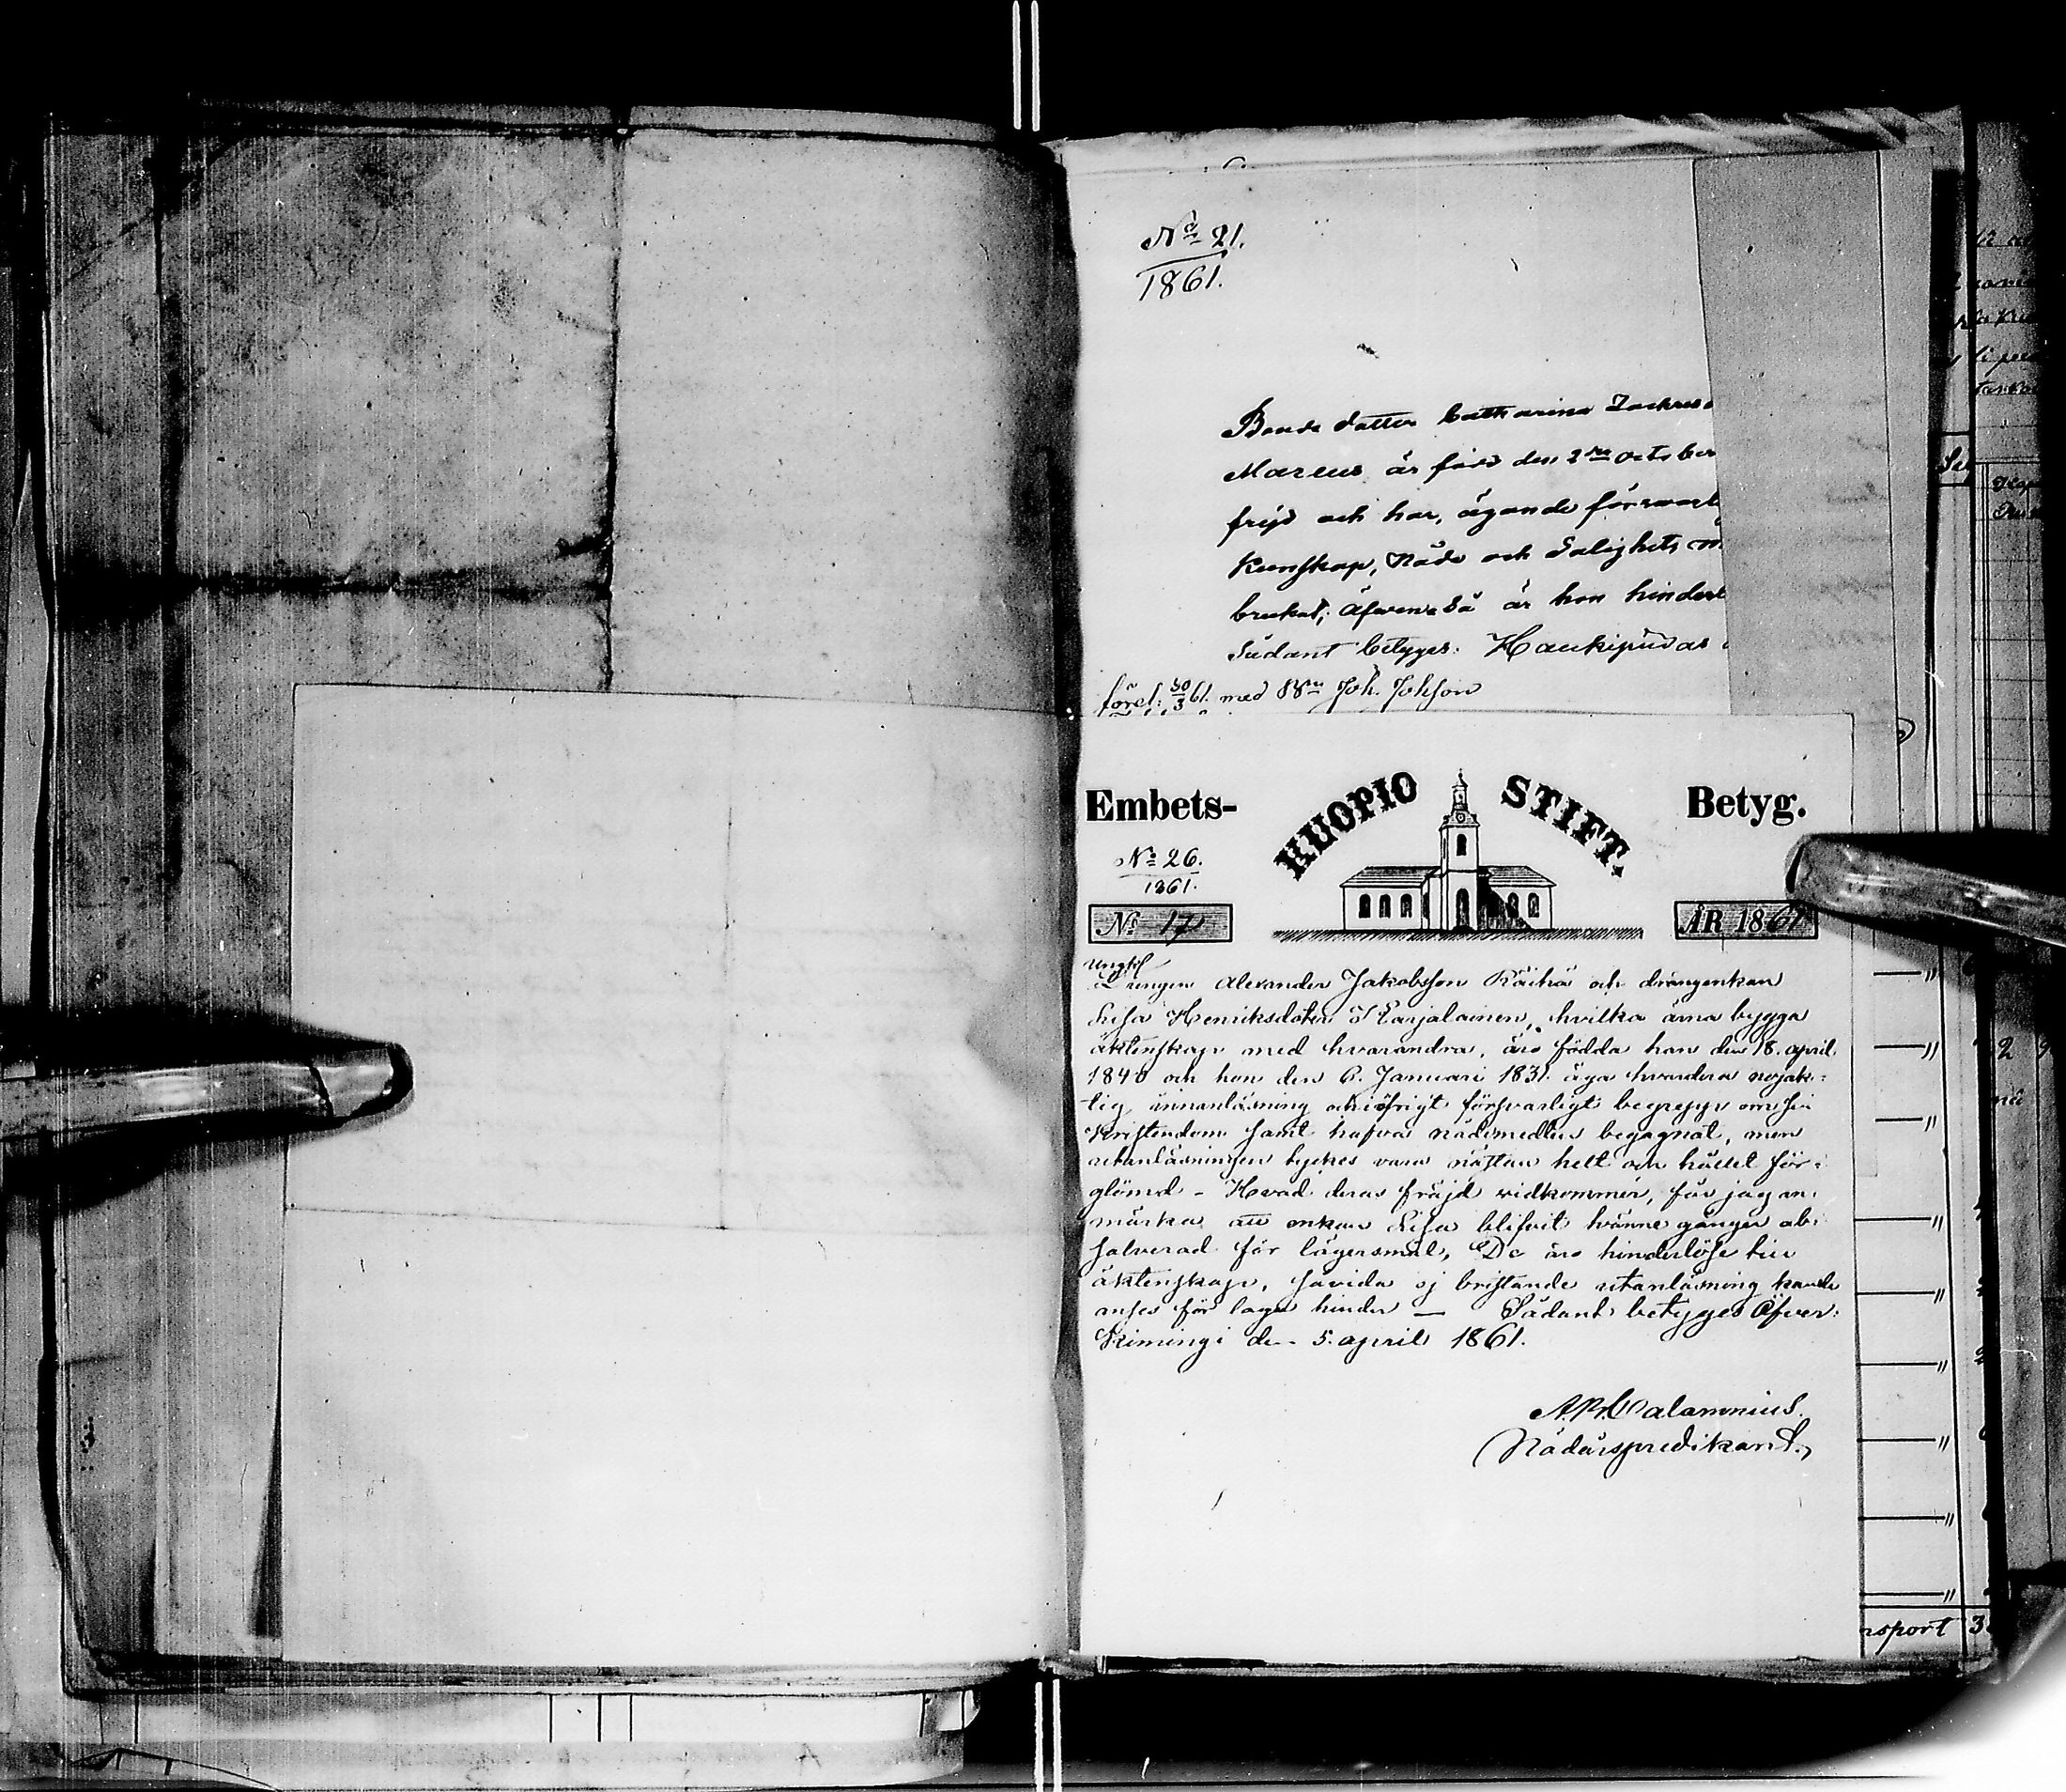 No 21.
1861.
Bonde dotter Catharina Zachrisd
Marcus är född den 2ra october
frejd och har, ägande försvarl
kunskap, Nåde och Salighets m
brukat; Äfvensså är hon hinderl
Sådant betyges. Haukipudas
förel: 30/3 61. med Joh. Johsson
Embets- KUOPIO STIFT. Betyg.
No 26.
1861.
No 17 ÅR 1861
Ungkl
Alexander Jakobsson Räihä och drängenkan
Lisa Henriksdotter Karjalainen, hvilka ärna bygga
äktenskap med hvarandra, äro födda han den 18. april
1840 och hon den 6. Januari 1831. äga hvardera nöjak-
tig innanläsning och öfrigt försvarligt begrepp om sin
Kristendom samt hafva nådemedlen begagnat, men
utanläsningen tyckes vara nästan helt och hållet för-
glömd - Hvad deras fräjd vidkommer, får jag an-
märka att enkan Lisa blifvit tvänne gånger ab-
solverad för lägersmål, De äro hinderlöse till
äktenskap, såvida ej bristande utanläsning kande
anses för laga hinder — Sådant betyges Öfver-
Kimingi den 5. april 1861.
Calamnius.
Nådårspredikant.
nsport 3